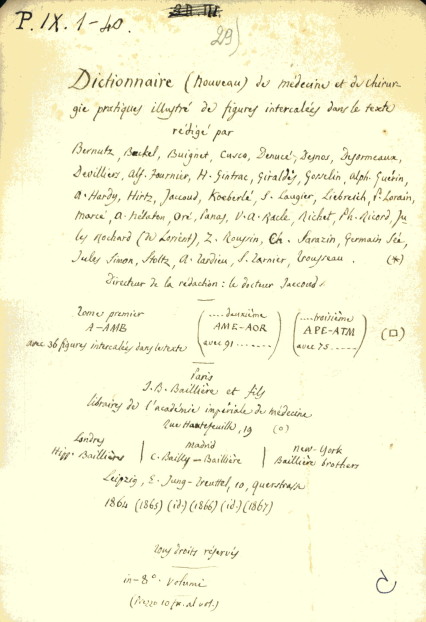 P. IX. 1-40.
29)
Dictionnaire (nouveau) de médecine et de chirur-
gie pratiques illustré de figures intercalées dans le texte
rédigé par
Bernutz, Boeckel, Buignet, Cusco, Denucé, Desnos, Desormeaux,
Devilliers, Alf. Fournier, H. Gintrac, Giraldès, Gosselin, Alph. Guérin,
A. Hardy, Hirtz, Jaccoud, Koeberlé, S. Laugier, Liebreich, P. Lorain,
Marcé, A. Nélaton, Oré, Panas, V. A. Racle, Richet, Ph. Ricord, Ju
les Rochard (de Lorient), Z. Roussin, Ch. Sarazin, Germain Sée,
Jules Simon, Stoltz, A. Tardieu, S. Tarnier, Trousseau. (*)
Directeur de la rédaction: le docteur Jaccoud
Tome premier (....deuxième) (....troisième)
A-AMB AME-AOR APE-ATM (□)
avec 36 figures intercalées dans le texte avec 91........ avec 75.....
Paris
J. B. Baillière et fils
libraires de l'académie impériale de médecine
Rue Hautefeuille, 19 (o)
Londres | Madrid | New-York
Hipp. Baillière | C. Bailly-Baillière | Baillière brothers
Leipzig, E. Jung-Treuttel, 10, Querstrasse
1864 (1865) (id.) (1866) (id.) (1867)
Tous droits réservés
in-8°. volume
(Prezzo 10 fr. al vol.)